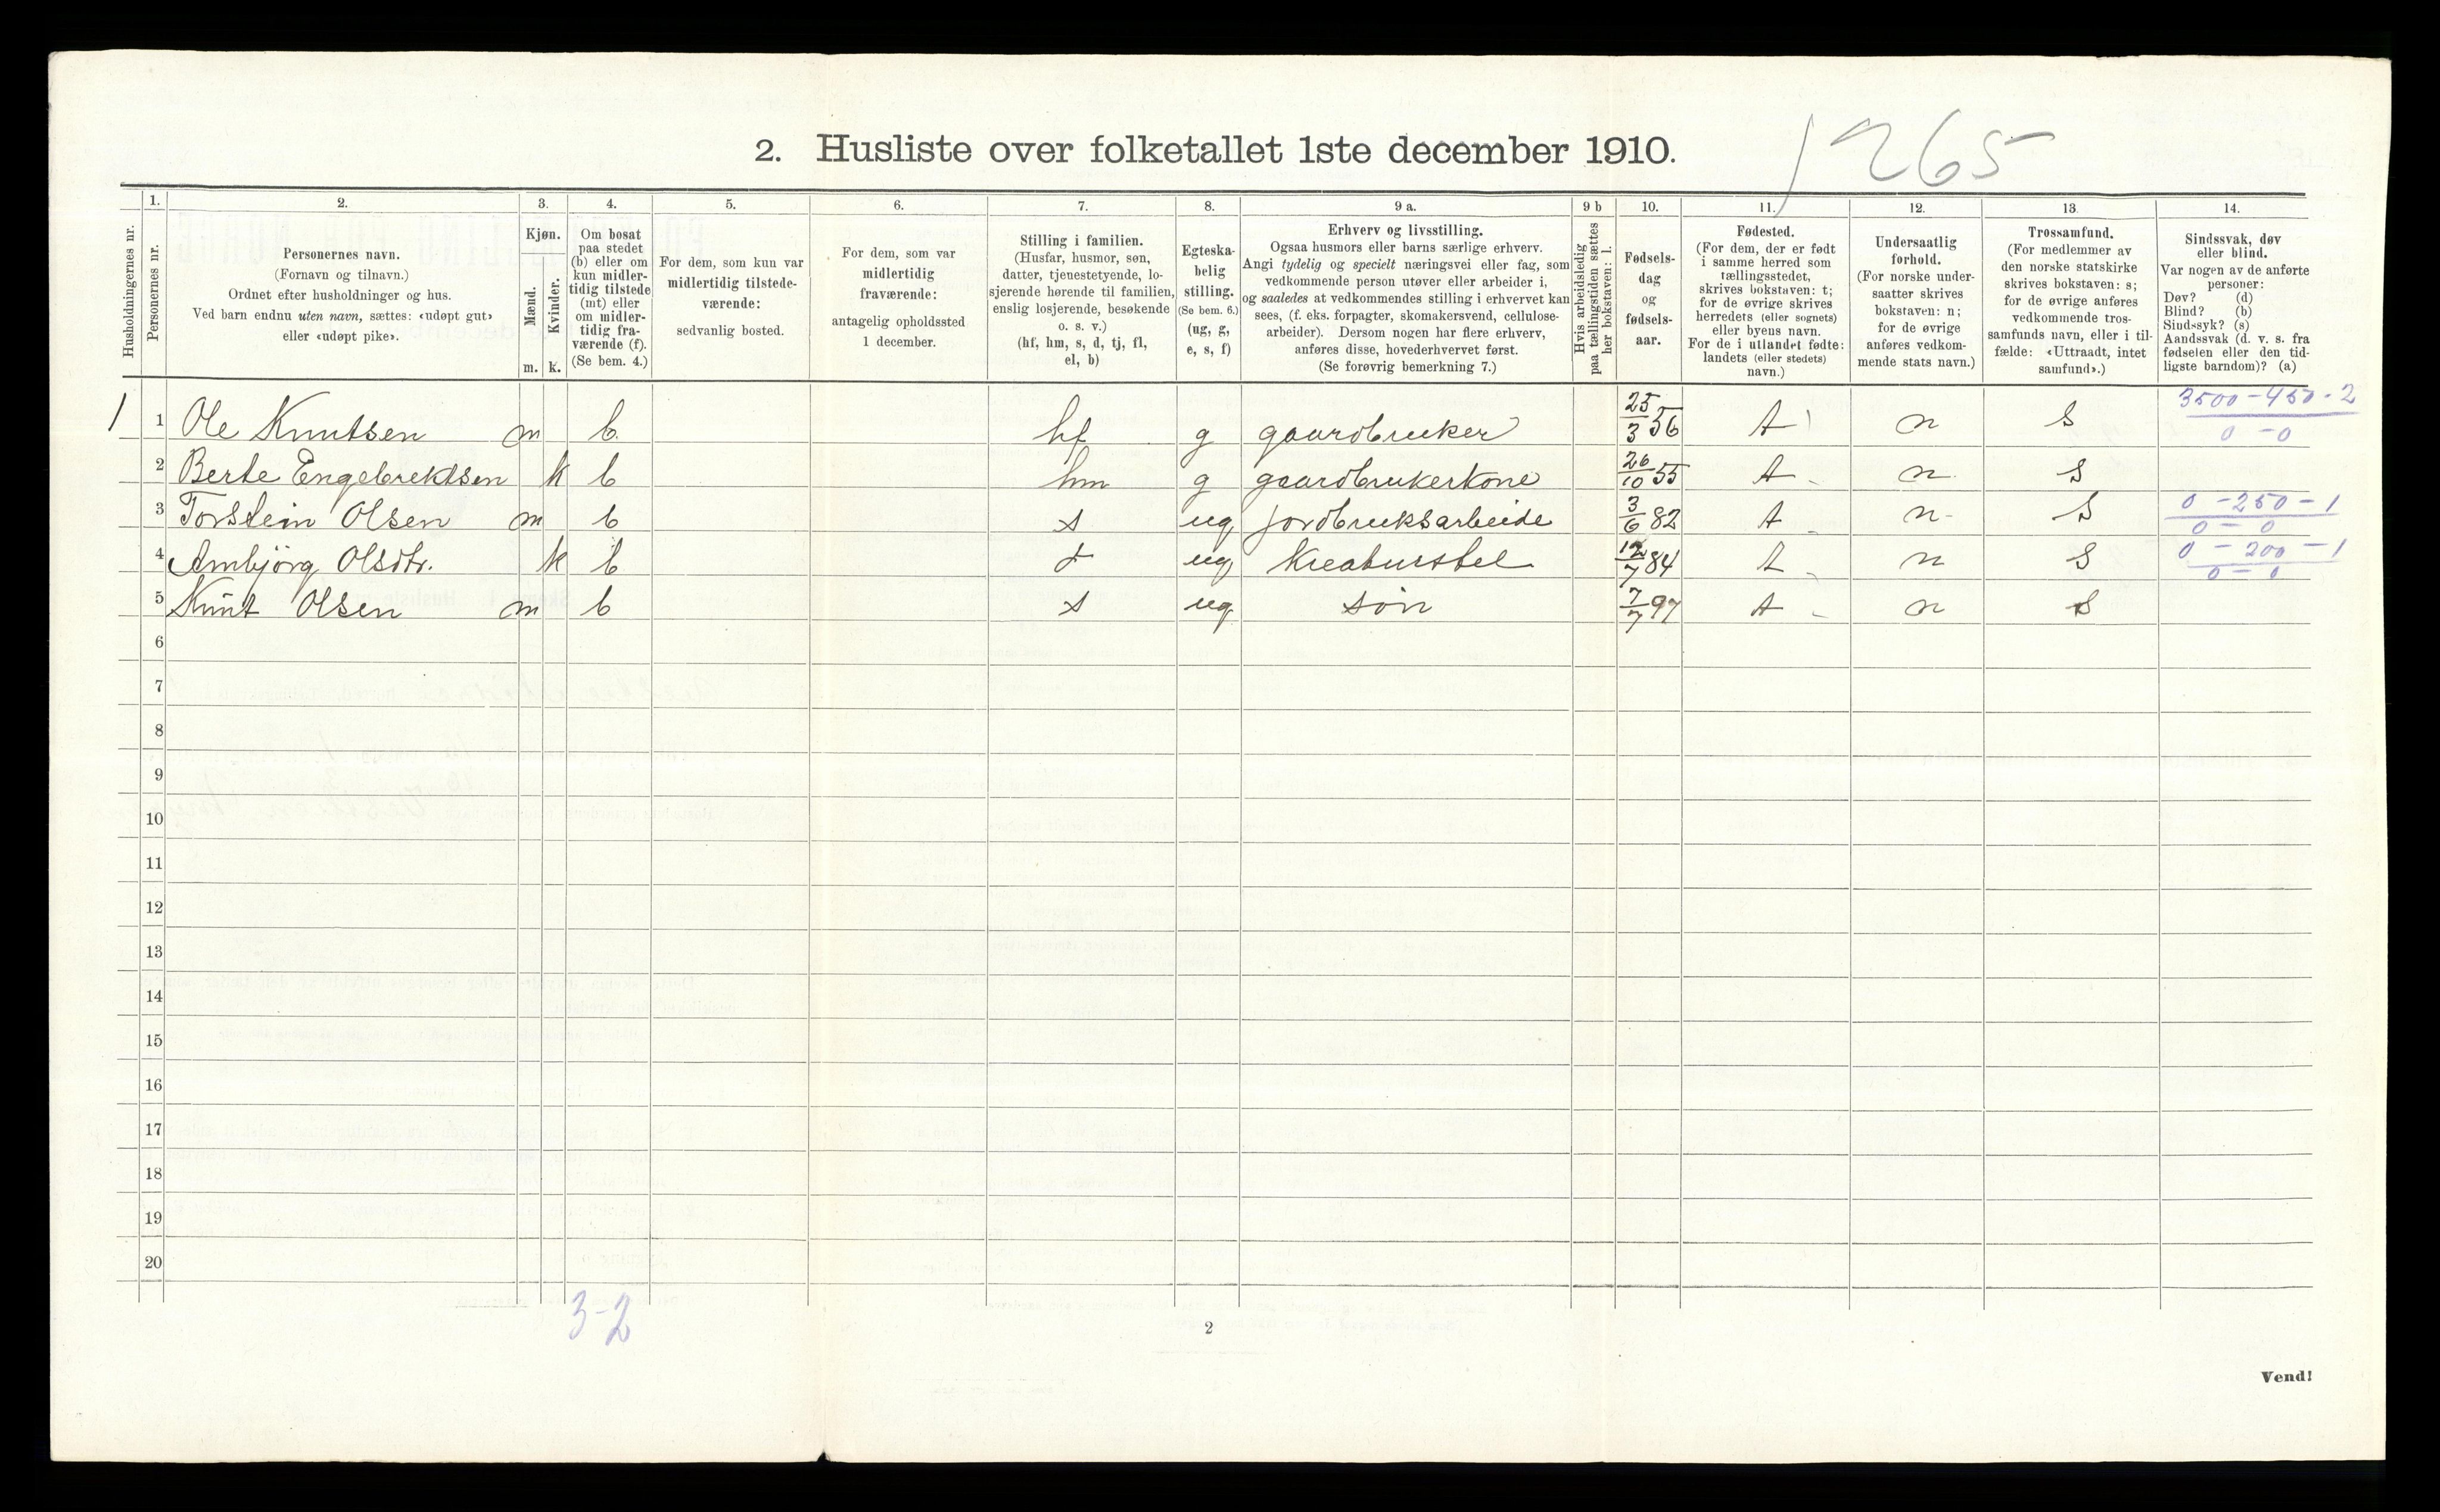 1265
2. Husliste over folketallet 1ste december 1910.
Husholdningernes nr.
1.
Personernes nr.
2.
Personernes navn.
(Fornavn og tilnavn.)
Ordnet efter husholdninger og hus.
Ved barn endnu uten navn, sættes: «udøpt gut»
eller «udøpt pike».
3.
Kjøn.
Mænd.
Kvinder.
m. k.
4.
Om bosat
paa stedet
(b) eller om
kun midler-
tidig tilstede
(mt) eller
om midler-
tidig fra-
værende (f).
(Se bem. 4.)
5.
For dem, som kun var
midlertidig tilstede-
værende:
sedvanlig bosted.
6.
For dem, som var
midlertidig
fraværende:
antagelig opholdssted
1 december.
7.
Stilling i familien.
(Husfar, husmor, søn,
datter, tjenestetyende, lo-
sjerende hørende til familien,
enslig losjerende, besøkende
o. s. v.)
(hf, hm, s, d, tj, fl,
el, b)
8.
Egteska-
belig
stilling.
(Se bem. 6.)
(ug, g,
e, s, f)
9 a.
Erhverv og livsstilling.
Ogsaa husmors eller barns særlige erhverv.
Angi tydelig og specielt næringsvei eller fag, som
vedkommende person utøver eller arbeider i,
og saaledes at vedkommendes stilling i erhvervet kan
sees, (f. eks. forpagter, skomakersvend, cellulose-
arbeider). Dersom nogen har flere erhverv,
anføres disse, hovederhvervet først.
(Se forøvrig bemerkning 7.)
9 b
Hvis arbeidsledig
paa tællingstiden sættes
her bokstaven: l.
10.
Fødsels-
dag
og
fødsels-
aar.
11.
Fødested.
(For dem, der er født
i samme herred som
tællingsstedet,
skrives bokstaven: t;
for de øvrige skrives
herredets (eller sognets)
eller byens navn.
For de i utlandet fødte:
landets (eller stedets)
navn.)
12.
Undersaatlig
forhold.
(For norske under-
saatter skrives
bokstaven: n;
for de øvrige
anføres vedkom-
mende stats navn.)
13.
Trossamfund.
(For medlemmer av
den norske statskirke
skrives bokstaven: s;
for de øvrige anføres
vedkommende tros-
samfunds navn, eller i til-
fælde: «Uttraadt, intet
samfund».)
14.
Sindssvak, døv
eller blind.
Var nogen av de anførte
personer:
Døv? (d)
Blind? (b)
Sindssyk? (s)
Aandssvak (d. v. s. fra
fødselen eller den tid-
ligste barndom)? (a)
1 1 Ole Knutsen m b. hf g gaardbruker 25/3 56 t n s 3500-450-2 0-0
2 Berte Engebrektsen k b hm g gaardbrukerkone 26/10 55 t n s
3 Torstein Olsen m b s ug jordbruksarbeide 3/6 82 t n s 0-250-1 0-0
4 Ambjörg Olsdtr. k b d ug kreaturstel 12/7 84 t n s 0-200-1 0-0
5 Knut Olsen m b s ug sön 7/7 97 t n s
6
7
8
9
10
11
12
13
14
15
16
17
18
19
20
3-2
2
Vend!